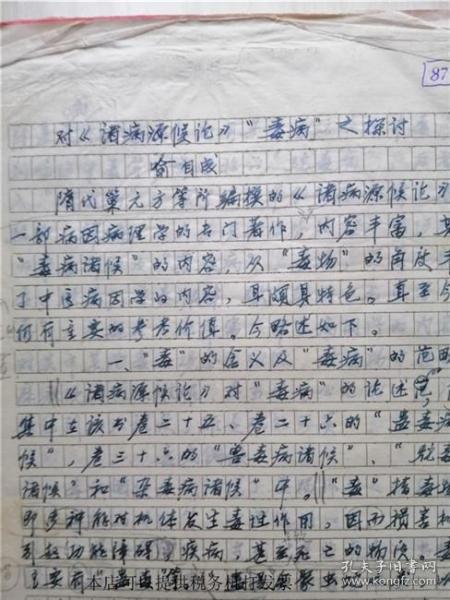 87
对《诸病源候论》“毒病”之探讨
俞自成
隋代巢元方等所编撰的《诸病源候论》
一部病因病理学的专门著作，内容丰富，其
“毒病诸候”的内容，从“毒物”的角度丰
了中医病因学的内容，且颇具特色。直至今
仍有重要的参考价值。今略述如下。
一、“毒”的含义及“毒病”的范围
《诸病源候论》对“毒病”的论述，
集中在该书卷二十五、卷二十六的“蛊毒病
候”，卷三十六的“兽毒病诸候”、“蛇毒
诸候”和“杂毒病诸候”中。“毒”指毒物
即多种能对机体发生毒性作用，因而损害机
引起功能障碍、疾病，甚至死亡的物质。
主要有“蛊毒
本店可以提供税务机打发票
孔夫子旧书网
www.kongfz.com